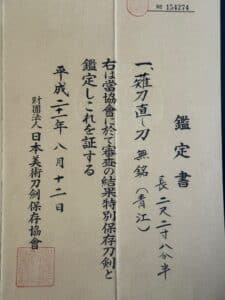 № 154274
鑑定書
一、薙刀直し刀 無銘(青江)
長二尺二寸八分半
右は當協會に於て審査の結果特別保存刀剣と
鑑定しこれを証する
平成二十一年八月十二日
財團法人日本美術刀剣保存協會